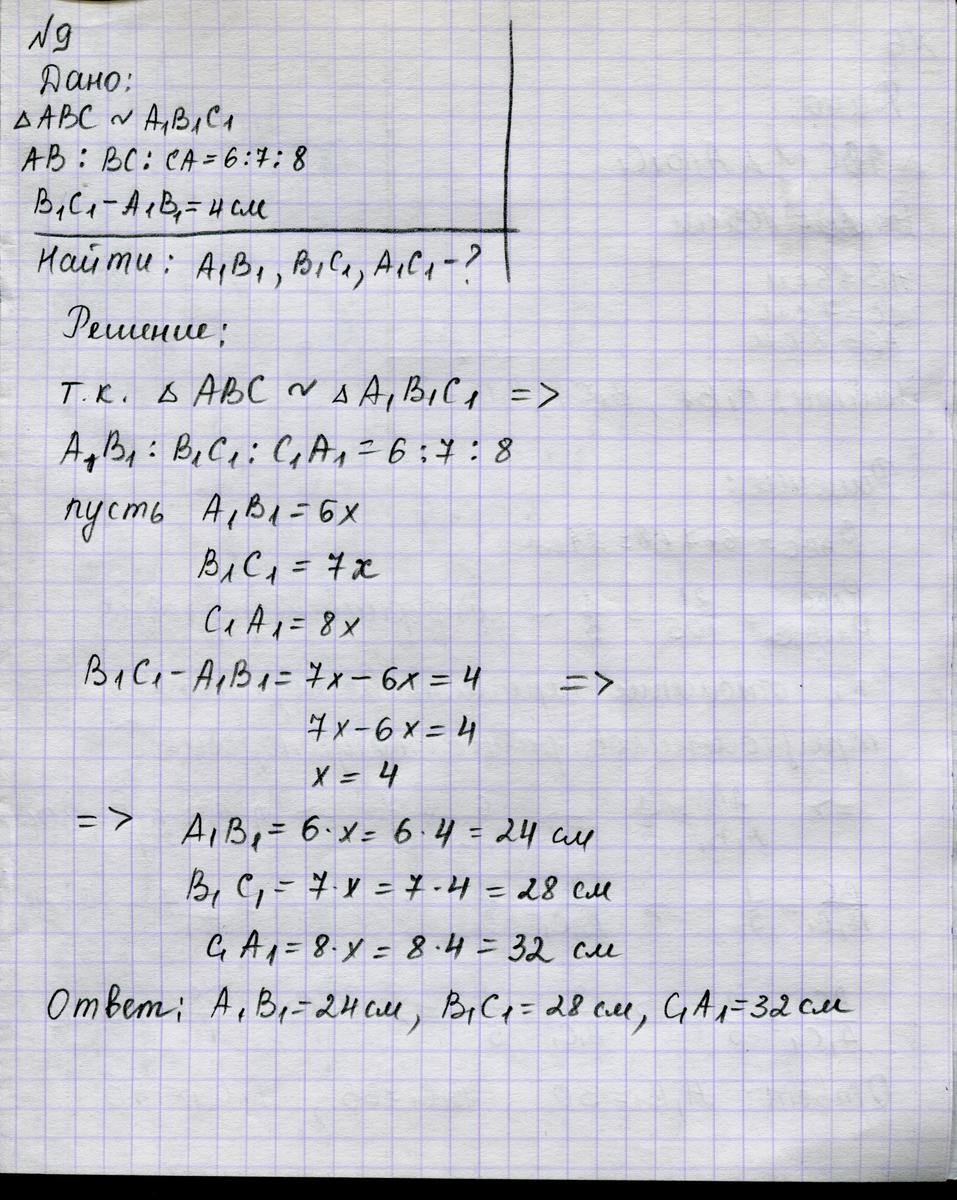 №9
Дано:
△ABC ~ A₁B₁C₁
AB : BC : CA = 6:7:8
B₁C₁ - A₁B₁ = 4 см
Найти: A₁B₁, B₁C₁, A₁C₁ - ?
Решение:
т.к. △ ABC ~ △ A₁B₁C₁ =>
A₁B₁ : B₁C₁ : C₁A₁ = 6 : 7 : 8
пусть A₁B₁ = 6x
B₁C₁ = 7x
C₁A₁ = 8x
B₁C₁ - A₁B₁ = 7x - 6x = 4 =>
7x - 6x = 4
x = 4
=> A₁B₁ = 6·x = 6·4 = 24 см
B₁C₁ = 7·x = 7·4 = 28 см
C₁A₁ = 8·x = 8·4 = 32 см
Ответ: A₁B₁ = 24 см, B₁C₁ = 28 см, C₁A₁ = 32 см